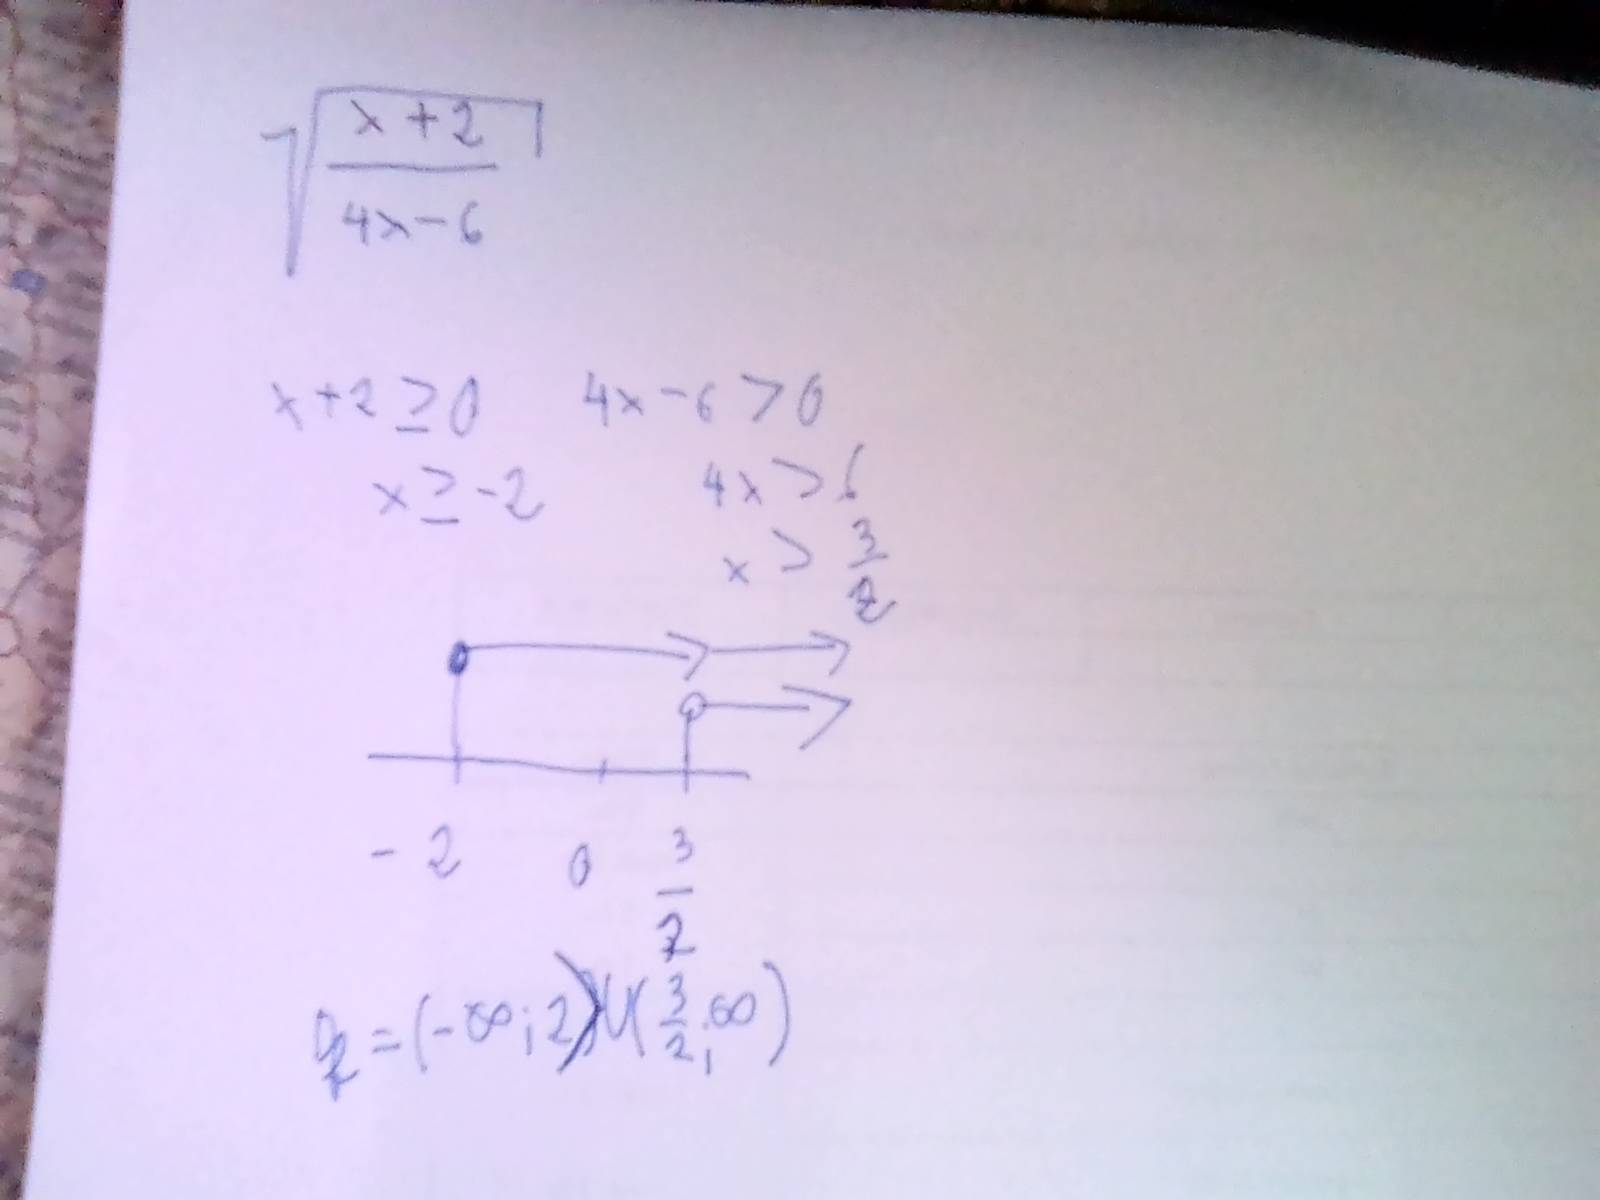 √(x+2)/(4x-6)
x+2 ≥ 0 4x-6 > 0
x ≥ -2 4x > 6
x > 3/2
-2 0 3/2
= (-∞; 2) ∪ (3/2; ∞)